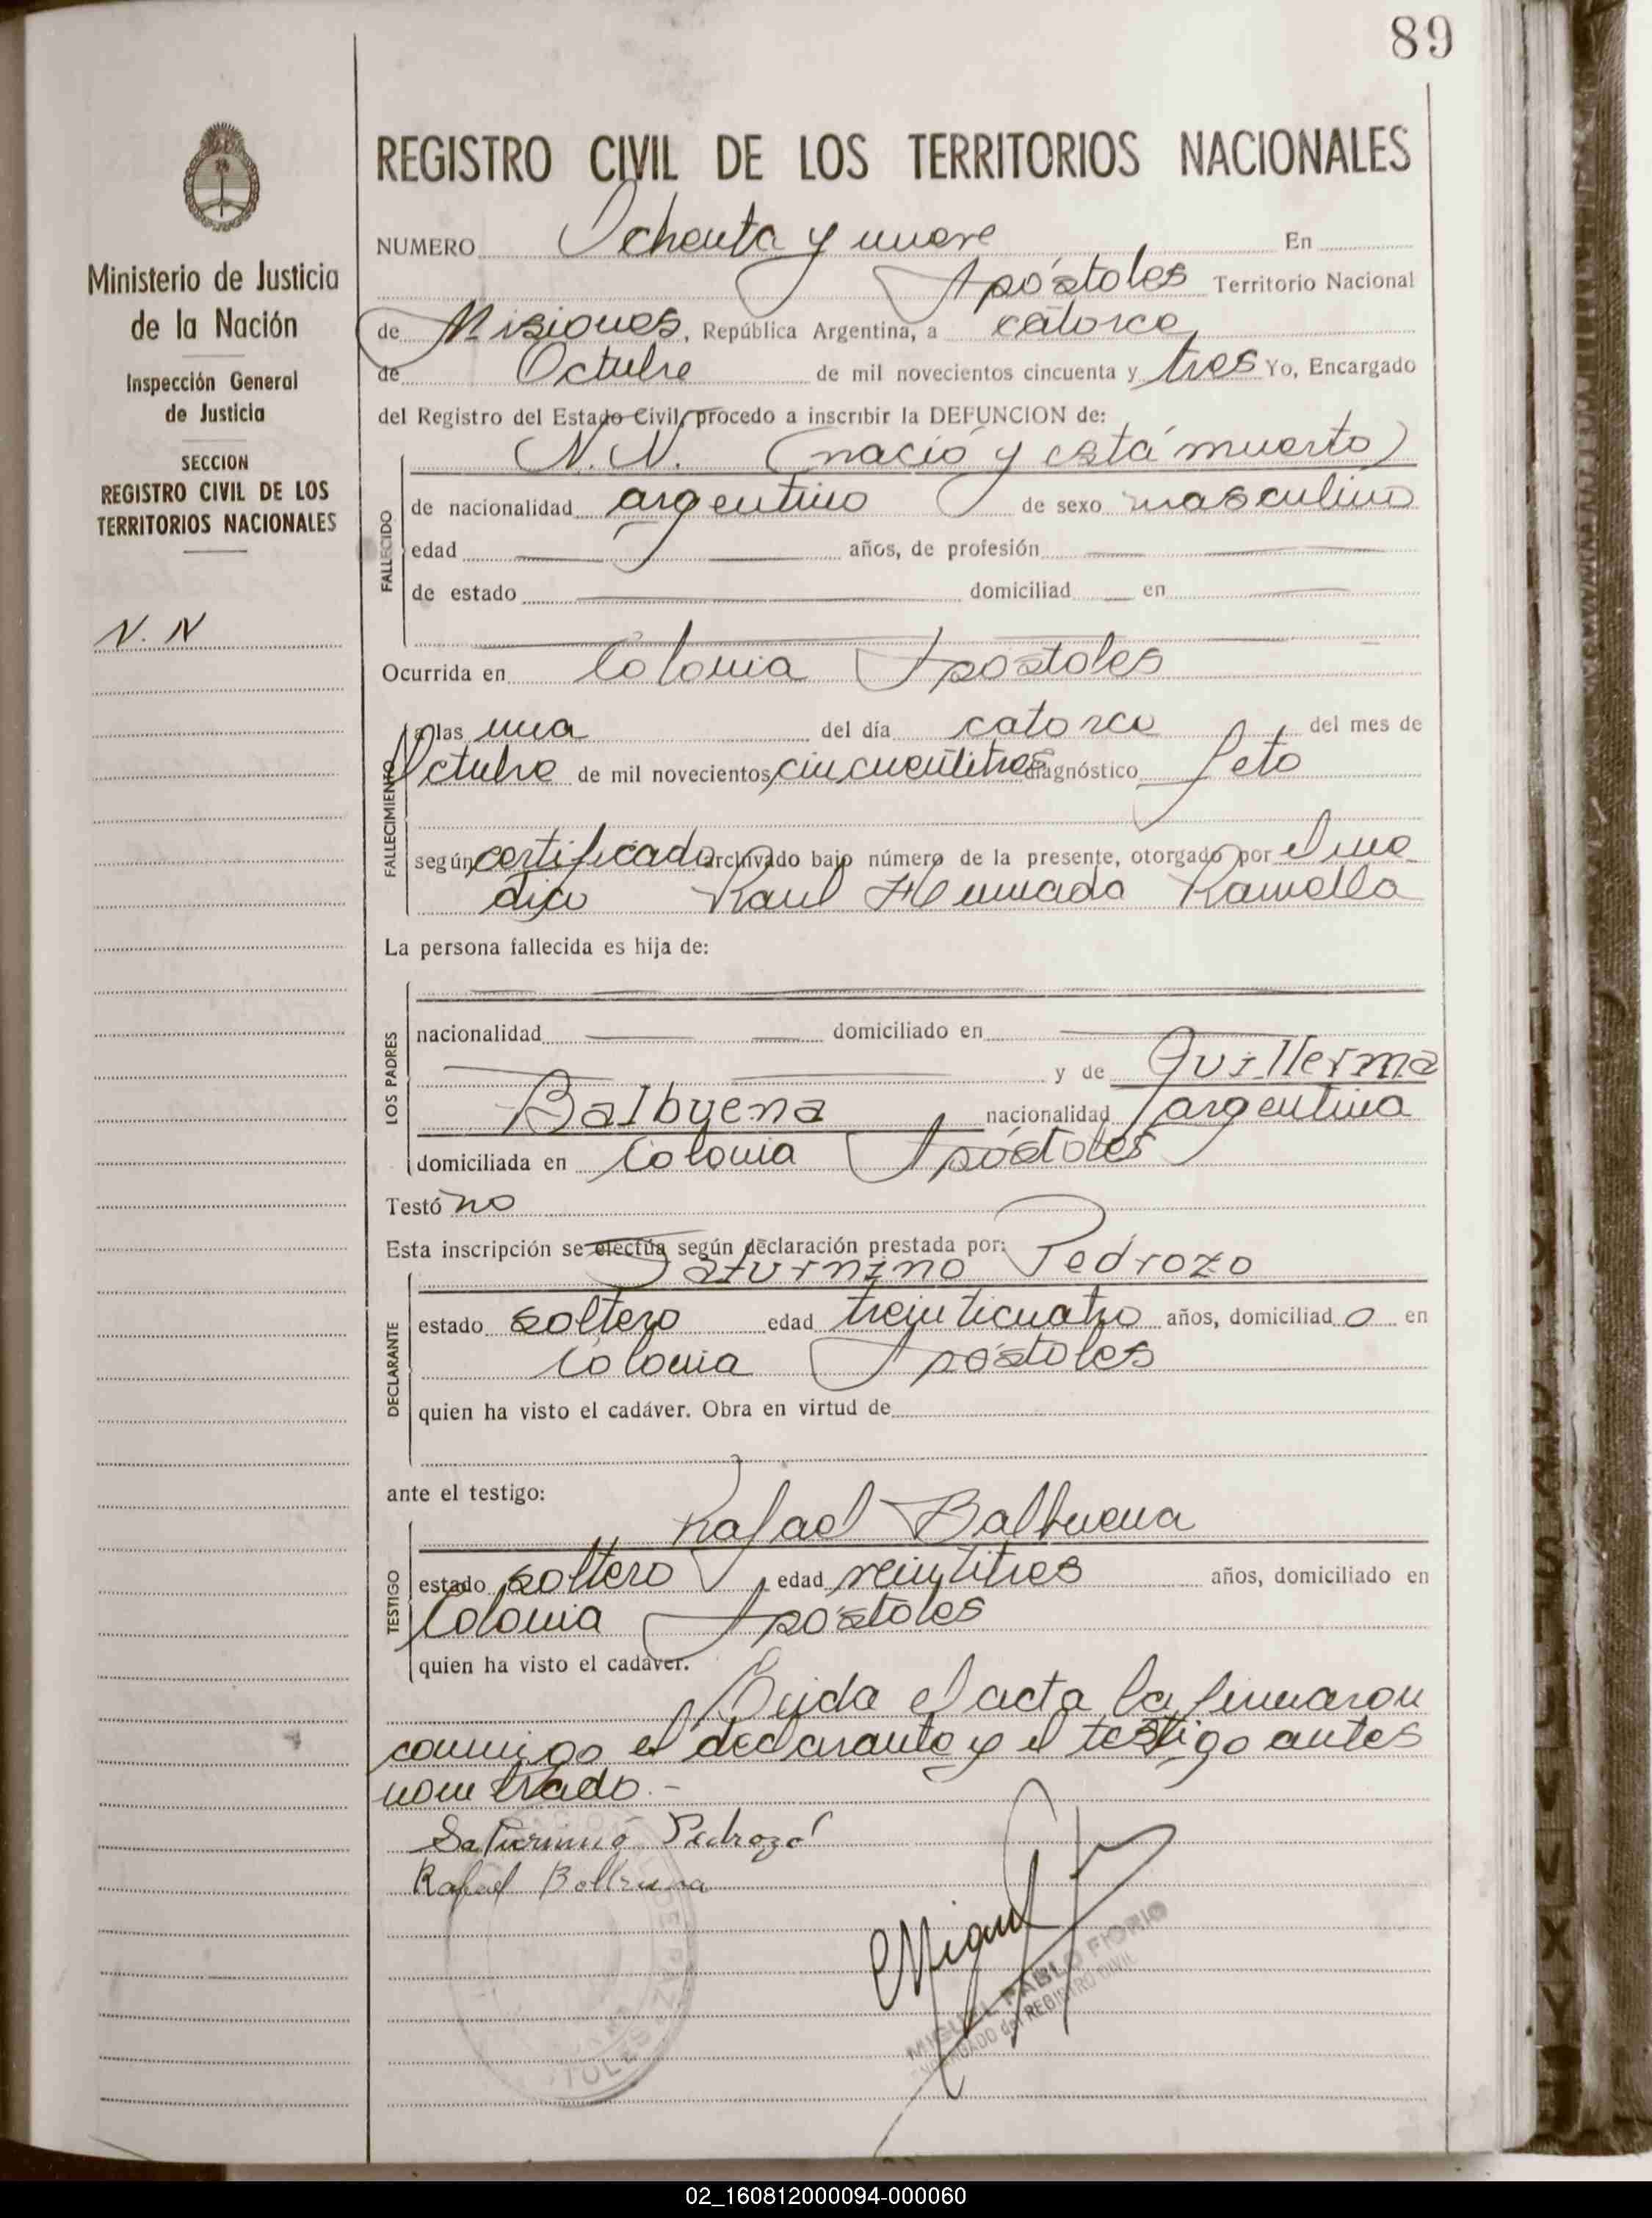 89
Ministerio de Justicia
de la Nación
Inspección General
de Justicia
SECCION
REGISTRO CIVIL DE LOS
TERRITORIOS NACIONALES
N. N
REGISTRO CIVIL DE LOS TERRITORIOS NACIONALES
NUMERO Ochenta y nueve En
Apóstoles Territorio Nacional
de Misiones, República Argentina, a catorce
de Octubre de mil novecientos cincuenta y tres Yo, Encargado
del Registro del Estado Civil, procedo a inscribir la DEFUNCION de:
N. N. (nació y está muerto)
FALLECIDO
de nacionalidad argentino de sexo masculino
edad años, de profesión
de estado domiciliad en
Ocurrida en Colonia Apóstoles
FALLECIMIENTO
a las una del día catorce del mes de
Octubre de mil novecientos cincuentitres diagnóstico feto
según certificado archivado bajo número de la presente, otorgado por el mé
dico Raul Ramella
La persona fallecida es hija de:
LOS PADRES
nacionalidad domiciliado en
y de Guillerma
Balbuena nacionalidad argentina
domiciliada en Colonia Apóstoles
Testó no
Esta inscripción se efectúa según declaración prestada por:
Saturnino Pedrozo
DECLARANTE
estado soltero edad treinticuatro años, domiciliad o en
Colonia Apóstoles
quien ha visto el cadáver. Obra en virtud de
ante el testigo:
Rafael Balbuena
TESTIGO
estado soltero edad veintitres años, domiciliado en
Colonia Apóstoles
quien ha visto el cadáver.
Leida el acta la firmaron
conmigo el declarante y el testigo antes
nombrado.-
Saturnino Pedrozo
Rafael Balbuena
Miguel
MIGUEL PABLO FIORIO
ENCARGADO del REGISTRO CIVIL
02_160812000094-000060